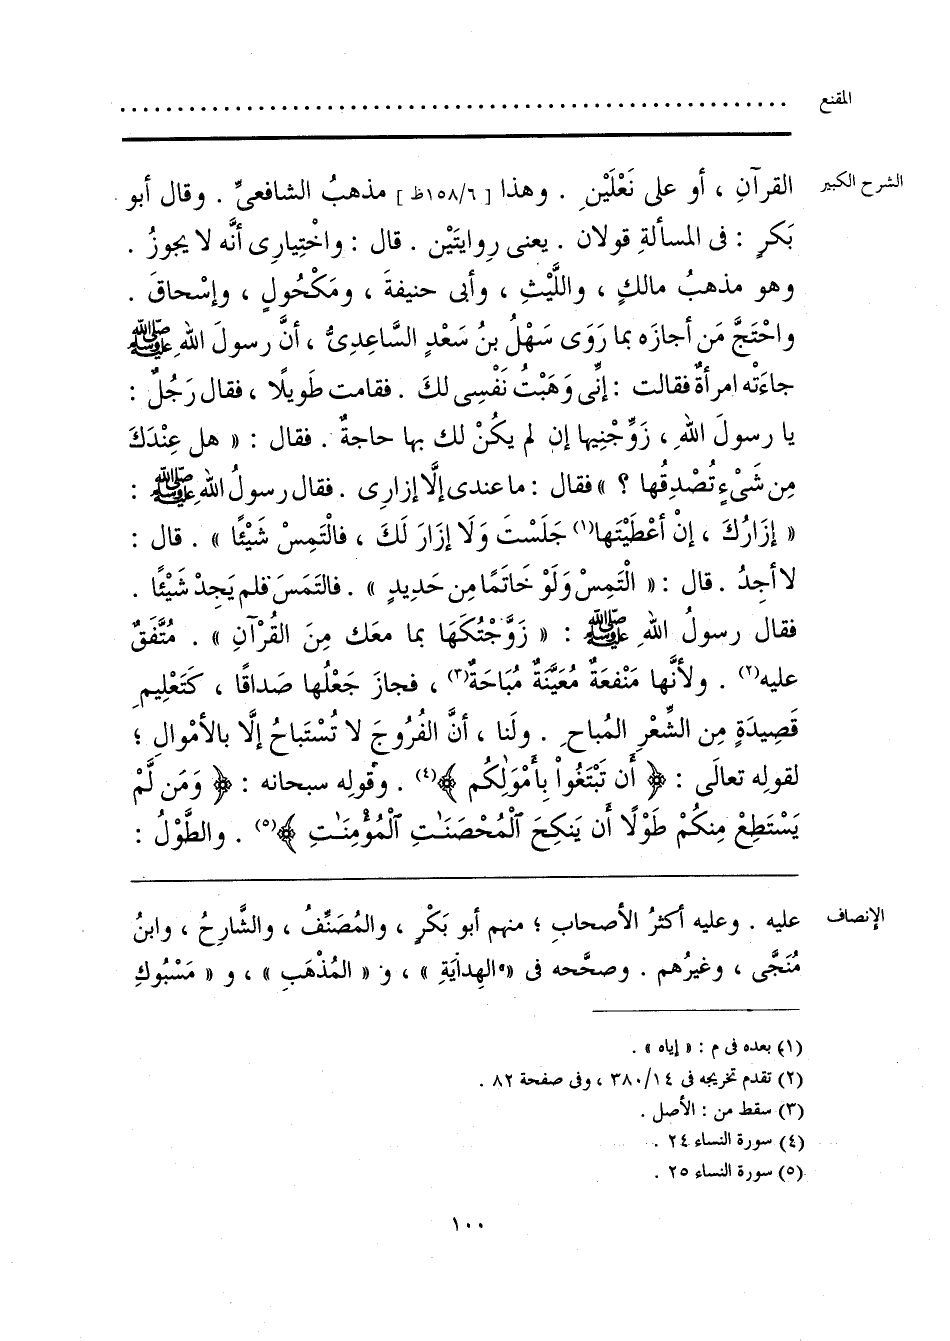 المقنع ..........................................................
الشرح الكبير القرآنِ ، أو على نَعْلَيْنِ . وهذا [ ١٥٨/٦ظ ] مذهبُ الشافعىِّ . وقال أبو
بَكرٍ : فى المسألةِ قولان . يعنى رِوايتَيْن . قال : واخْتِيارِى أنَّه لا يجوزُ .
وهو مذهبُ مالكٍ ، واللَّيْثِ ، وأبى حنيفةَ ، ومَكْحُولٍ ، وإسْحاقَ .
واحْتَجَّ مَن أجازَه بما رَوَى سَهْلُ بنُ سَعْدٍ السَّاعِدِىُّ ، أنَّ رسولَ اللهِ ﷺ
جاءَتْه امرأةٌ فقالت : إنِّى وَهَبْتُ نَفْسِى لكَ . فقامت طَويلًا ، فقال رَجُلٌ :
يا رسولَ اللهِ ، زَوِّجْنِيها إن لم يكُنْ لك بها حاجةٌ . فقال : « هل عِنْدَكَ
مِن شَىْءٍ تُصْدِقُها ؟ » فقال : ما عندى إلَّا إزارِى . فقال رسولُ اللهِ ﷺ :
« إزَارُكَ ، إنْ أعْطَيْتَها(١) جَلَسْتَ وَلَا إزَارَ لَكَ ، فالْتَمِسْ شَيْئًا » . قال :
لا أجِدُ . قال : « الْتَمِسْ وَلَوْ خَاتَمًا مِن حَدِيدٍ » . فالتَمَسَ فلم يَجِدْ شَيْئًا .
فقال رسولُ اللهِ ﷺ : « زَوَّجْتُكَهَا بما معَك مِنَ القُرْآنِ » . مُتَّفَقٌ
عليه(٢) . ولأنَّها مَنْفعَةٌ مُعَيَّنَةٌ مُبَاحَةٌ(٣) ، فجازَ جَعْلُها صَداقًا ، كَتَعْلِيمِ
قَصِيدَةٍ مِن الشِّعْرِ المُباحِ . ولَنا ، أنَّ الفُرُوجَ لا تُسْتَباحُ إلَّا بالأمْوالِ ؛
لقولِه تعالَى : ﴿ أَن تَبْتَغُواْ بِأَمْوَٰلِكُم ﴾(٤) . وقولِه سبحانه : ﴿ وَمَن لَّمْ
يَسْتَطِعْ مِنكُمْ طَوْلًا أَن يَنكِحَ ٱلْمُحْصَنَـٰتِ ٱلْمُؤْمِنَـٰتِ ﴾(٥) . والطَّوْلُ :
الإنصاف عليه . وعليه أكثرُ الأصحابِ ؛ منهم أبو بَكْرٍ ، والمُصَنِّفُ ، والشَّارِحُ ، وابنُ
مُنَجَّى ، وغيرُهم . وصحَّحه فى « الهِدايَةِ » ، و « المُذْهَبِ » ، و « مَسْبُوكِ
(١) بعده فى م : « إياه » .
(٢) تقدم تخريجه فى ٣٨٠/١٤ ، وفى صفحة ٨٢ .
(٣) سقط من : الأصل .
(٤) سورة النساء ٢٤ .
(٥) سورة النساء ٢٥ .
١٠٠